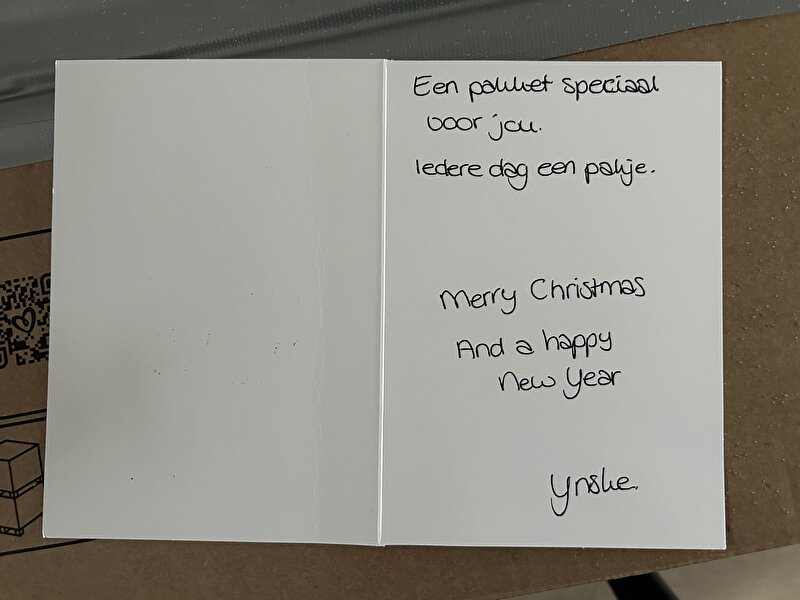 Een pakket speciaal
voor jou.
Iedere dag een pakje.
Merry Christmas
And a happy
New Year
Ynske.